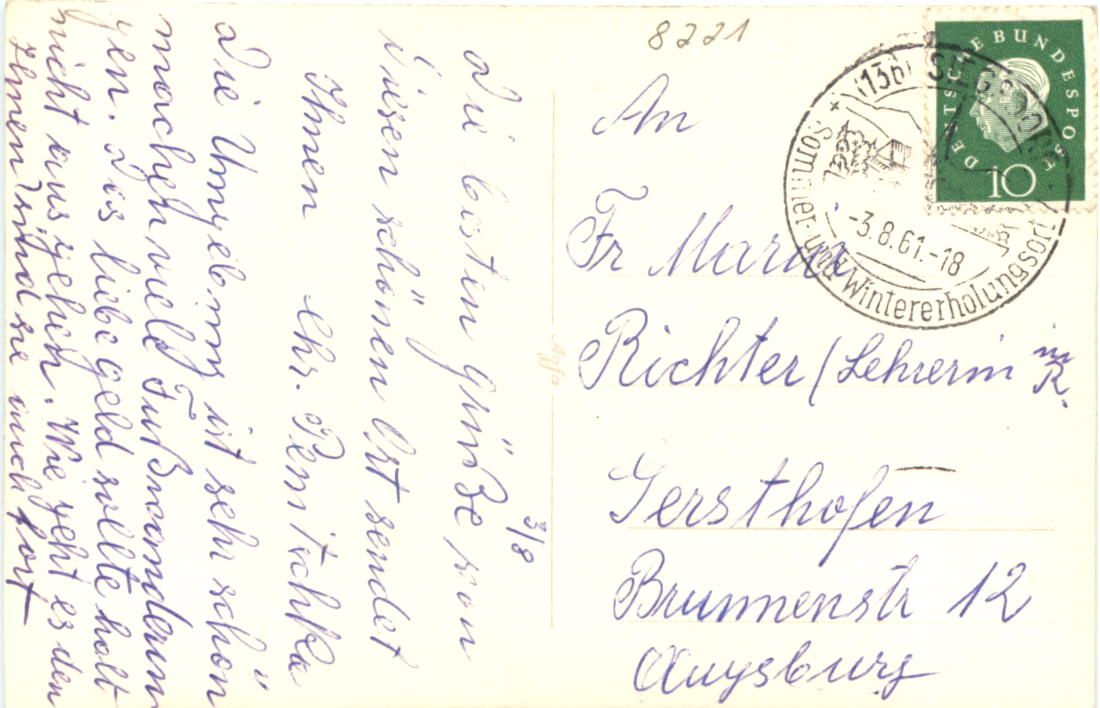 8221
3/8
Die besten Grüße von
diesen schönen Ort sendet
Ihnen Chr.
Die Umgebung ist sehr schön
machen viele Fußwanderun
gen. Das liebe Geld sollte halt
nicht ausgehen. Wie geht es den
Ihnen sind sie auch fort
An
Fr Maria
Richter / Lehrerin i. R.
Gersthofen
Brunnenstr 12
Augsburg
Agfa
DEUTSCHE BUNDESPOST
10
(13b) SIEGSDORF
-3.8.61.-18
Sommer- und Wintererholungsort